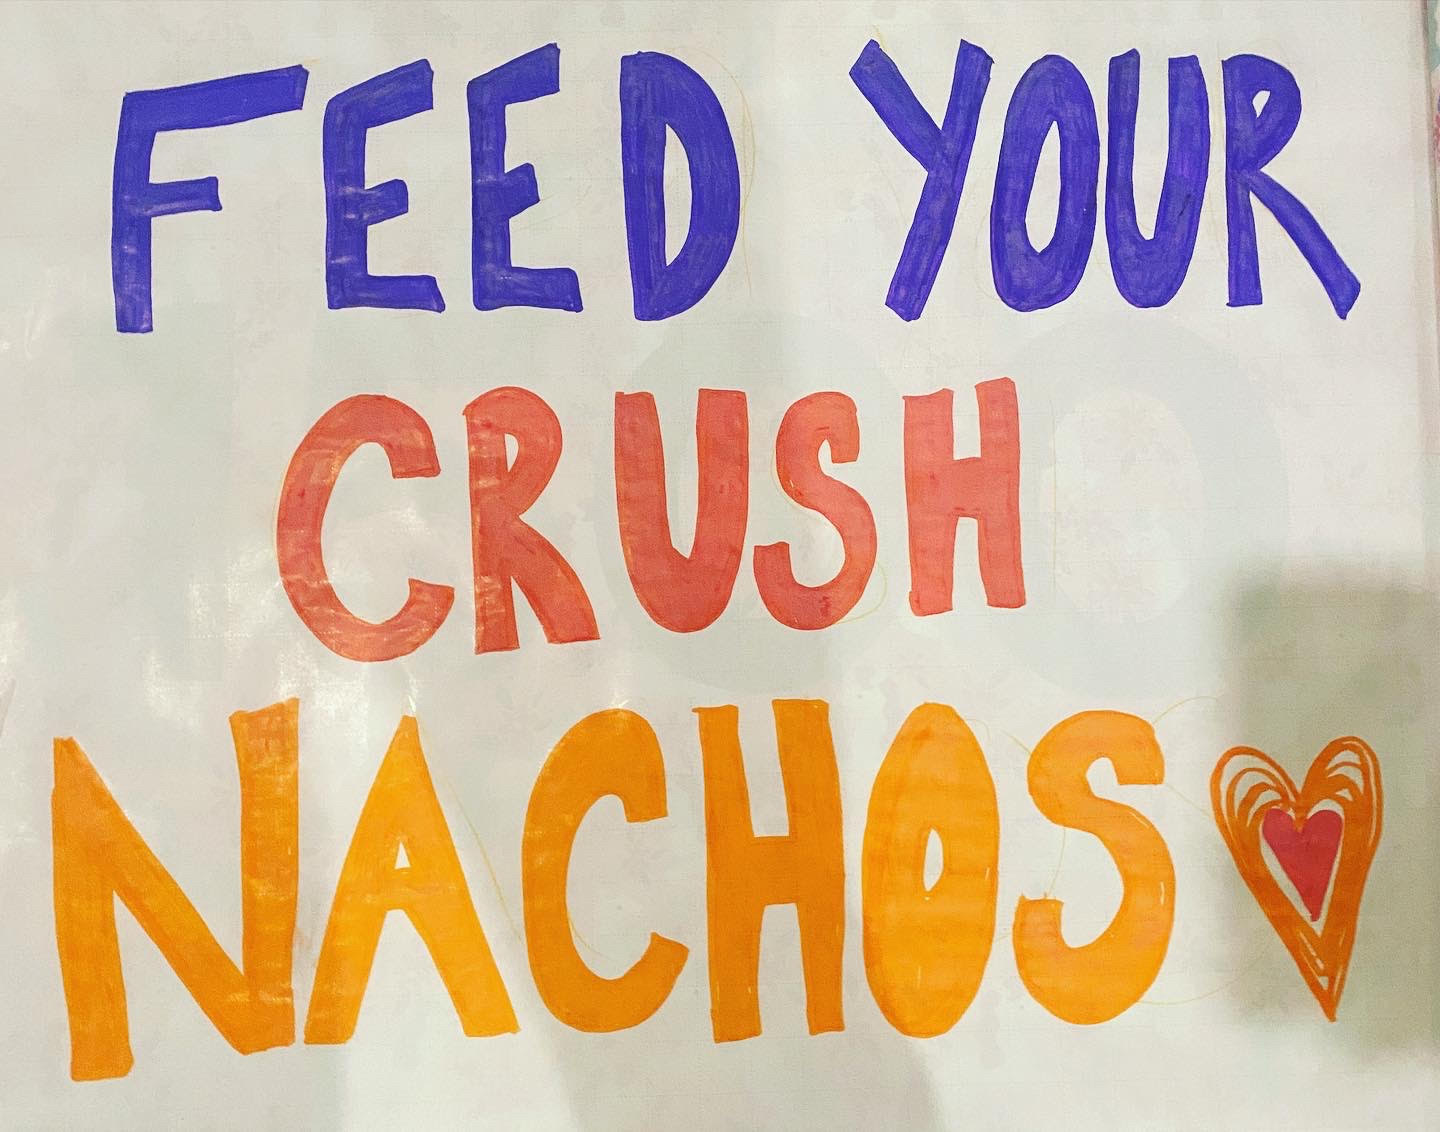 FEED YOUR
CRUSH
NACHOS